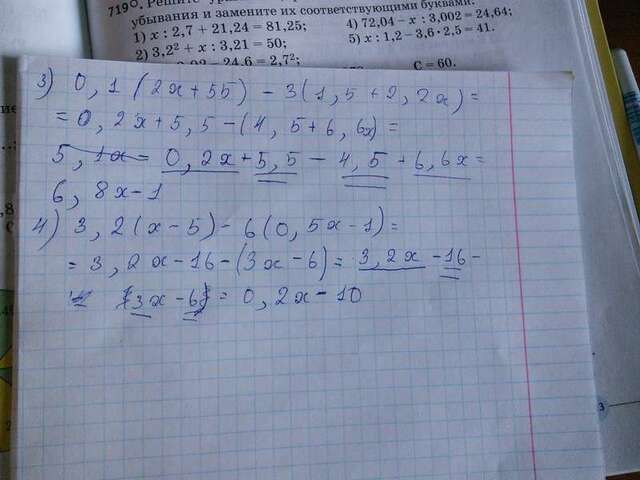 719°. Решите
убывания и замените их соответствующими буквами:
1) x : 2,7 + 21,24 = 81,25; 4) 72,04 − x : 3,002 = 24,64;
2) 3,2² + x : 3,21 = 50; 5) x : 1,2 − 3,6 · 2,5 = 41.
24,6 = 2,7²; C = 60.
3) 0,1 (2x + 55) − 3(1,5 + 2,2x) =
= 0,2x + 5,5 − (4,5 + 6,6x) =
5,1x = 0,2x + 5,5 − 4,5 + 6,6x =
6,8x − 1
4) 3,2(x − 5) − 6(0,5x − 1) =
= 3,2x − 16 − (3x − 6) = 3,2x − 16 −
3x − 6 = 0,2x − 10